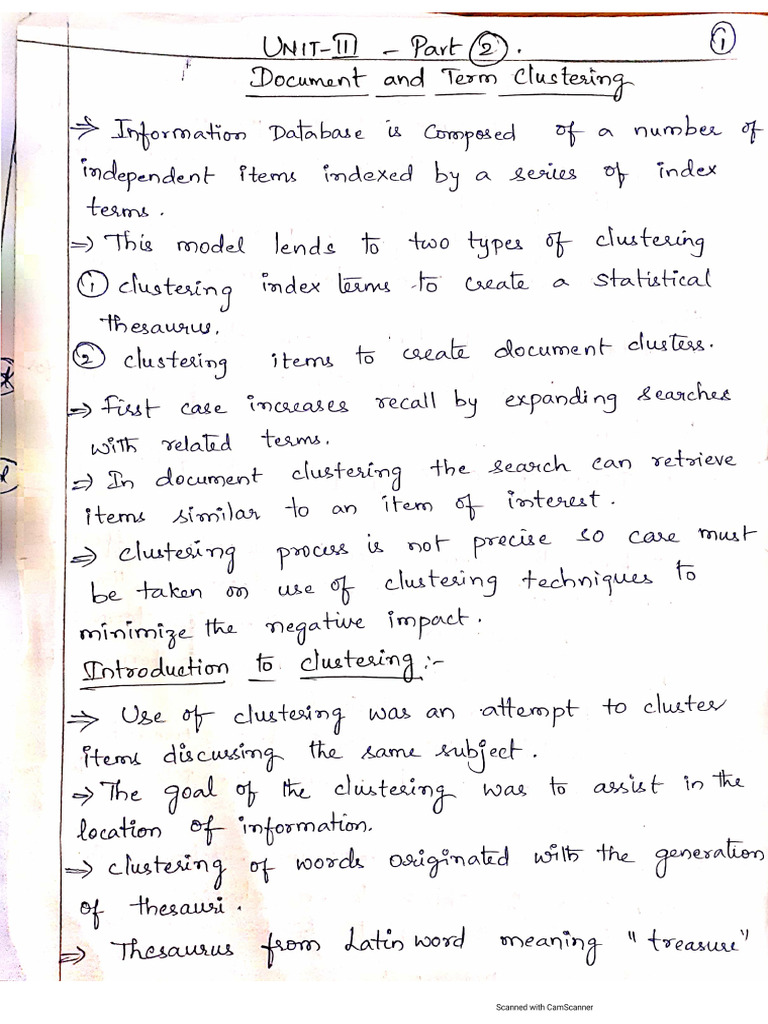 UNIT-III - Part (2). (1)
Document and Term Clustering
⇒ Information Database is composed of a number of
independent items indexed by a series of index
terms.
⇒ This model lends to two types of clustering
(1) clustering index terms to create a statistical
thesaurus.
(2) clustering items to create document clusters.
⇒ first case increases recall by expanding searches
with related terms.
⇒ In document clustering the search can retrieve
items similar to an item of interest.
⇒ clustering process is not precise so care must
be taken on use of clustering techniques to
minimize the negative impact.
Introduction to clustering:-
⇒ Use of clustering was an attempt to cluster
items discussing the same subject.
⇒ The goal of the clustering was to assist in the
location of information.
⇒ clustering of words originated with the generation
of thesauri.
⇒ Thesaurus from Latin word meaning "treasure"
Scanned with CamScanner